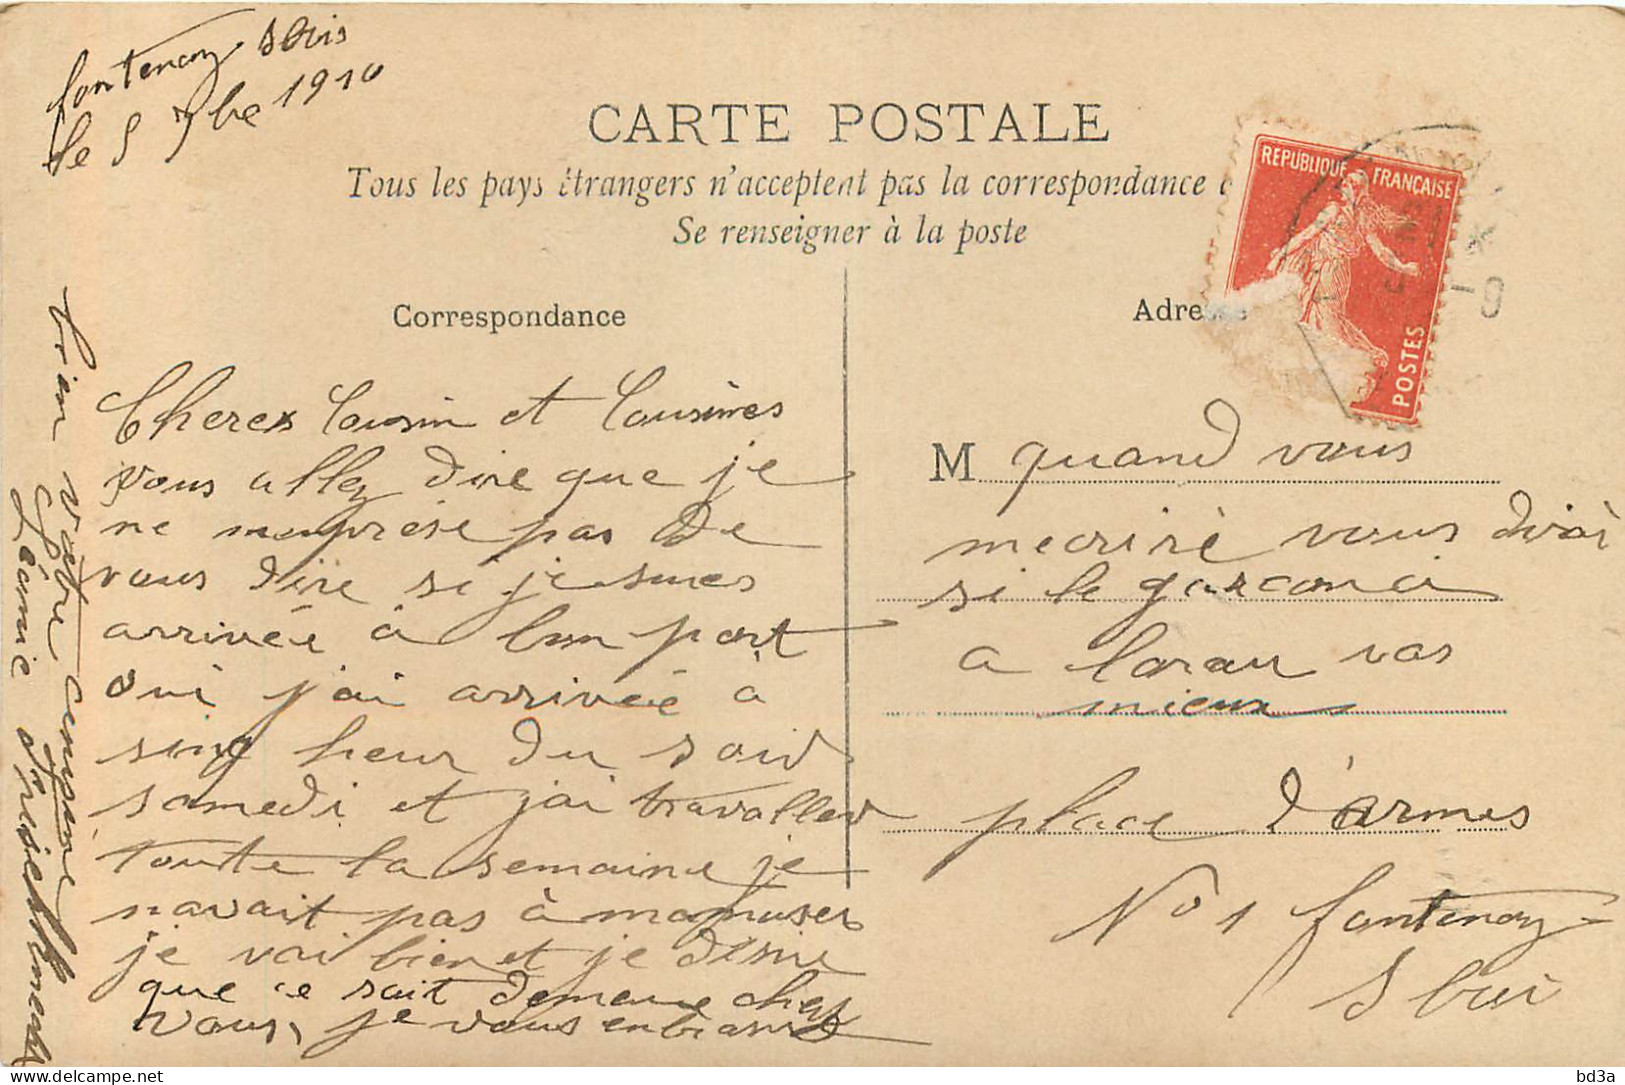 fontenay sbois
le 5 7bre 1910
CARTE POSTALE
Tous les pays étrangers n'acceptent pas la correspondance
Se renseigner à la poste
REPUBLIQUE FRANÇAISE
POSTES
Correspondance
Adresse
Cheres Cousin et Cousines
vous allez dire que je
ne memprése pas de
vous dire si je sues
arrivée à bon port
oui j'ai arrivéé à
sinq heur du soir
samedi et j'ai travaller
toute la semaine je
navait pas à mamuser
je vai bien et je désire
que ce sait de meme chez
vous, je vous enbrasse
bien votre
Léonie
M quand vous
mecriré vous dirai
si le garcon
a vas
mieux
place d'armes
No 1 fontenay
s boi
bd3a